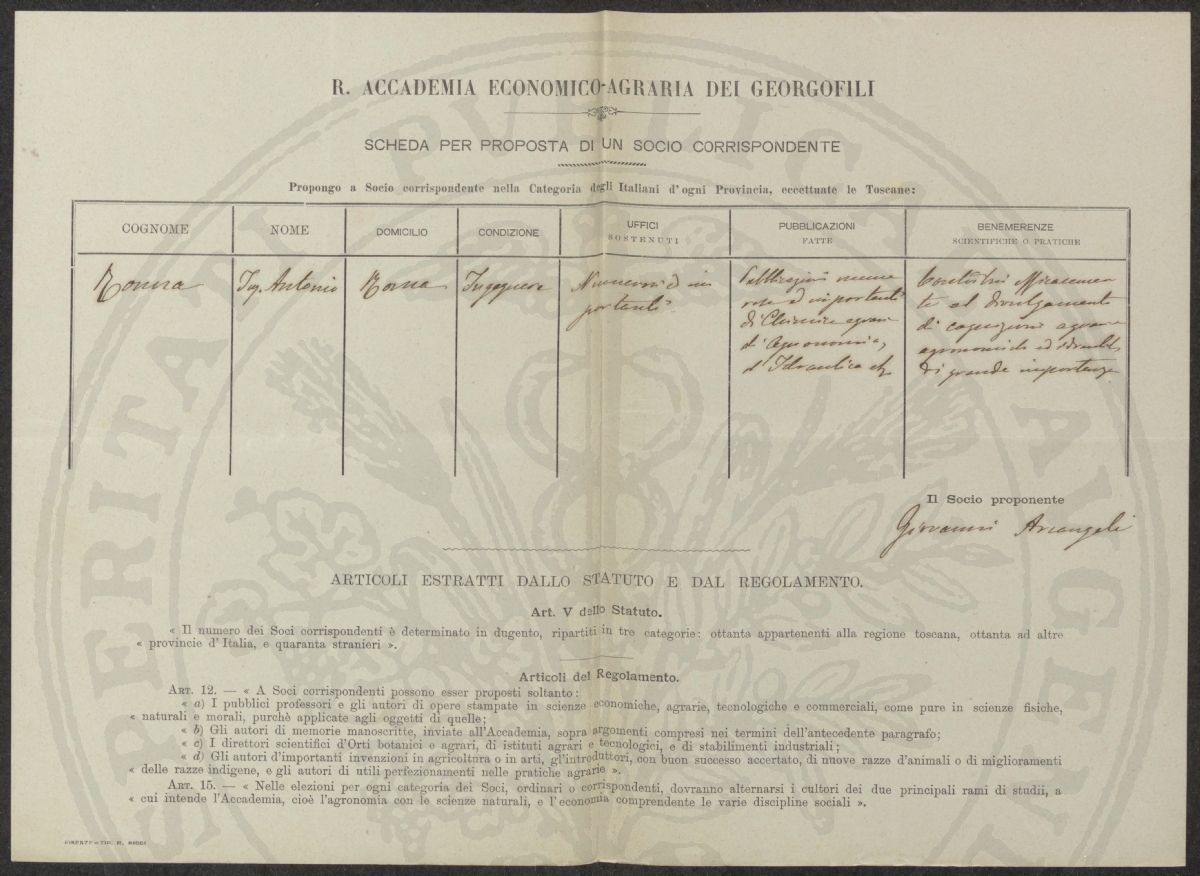 R. ACCADEMIA ECONOMICO-AGRARIA DEI GEORGOFILI
SCHEDA PER PROPOSTA DI UN SOCIO CORRISPONDENTE
Propongo a Socio corrispondente nella Categoria degli Italiani d'ogni Provincia, eccettuate le Toscane:
COGNOME
NOME
DOMICILIO
CONDIZIONE
UFFICI
SOSTENUTI
PUBBLICAZIONI
FATTE
BENEMERENZE
SCIENTIFICHE O PRATICHE
Ing. Antonio
Roma
Ingegnere
Numerosi ed im
portanti
Pubblicazioni nume
rose ed importanti
di Chimica agraria
d'Agronomia,
d'Idraulica
al divulgamento
di cognizioni agrarie
agronomiche ed
di grande importanza
Il Socio proponente
Giovanni Arcangeli
ARTICOLI ESTRATTI DALLO STATUTO E DAL REGOLAMENTO.
Art. V dello Statuto.
« Il numero dei Soci corrispondenti è determinato in dugento, ripartiti in tre categorie: ottanta appartenenti alla regione toscana, ottanta ad altre
« provincie d'Italia, e quaranta stranieri ».
Articoli del Regolamento.
ART. 12. — « A Soci corrispondenti possono esser proposti soltanto:
« a) I pubblici professori e gli autori di opere stampate in scienze economiche, agrarie, tecnologiche e commerciali, come pure in scienze fisiche,
« naturali e morali, purchè applicate agli oggetti di quelle;
« b) Gli autori di memorie manoscritte, inviate all'Accademia, sopra argomenti compresi nei termini dell'antecedente paragrafo;
« c) I direttori scientifici d'Orti botanici e agrari, di istituti agrari e tecnologici, e di stabilimenti industriali;
« d) Gli autori d'importanti invenzioni in agricoltura o in arti, gl'introduttori, con buon successo accertato, di nuove razze d'animali o di miglioramenti
« delle razze indigene, e gli autori di utili perfezionamenti nelle pratiche agrarie ».
ART. 15. — « Nelle elezioni per ogni categoria dei Soci, ordinari o corrispondenti, dovranno alternarsi i cultori dei due principali rami di studii, a
« cui intende l'Accademia, cioè l'agronomia con le scienze naturali, e l'economia comprendente le varie discipline sociali ».
FIRENZE — TIP. M. RICCI